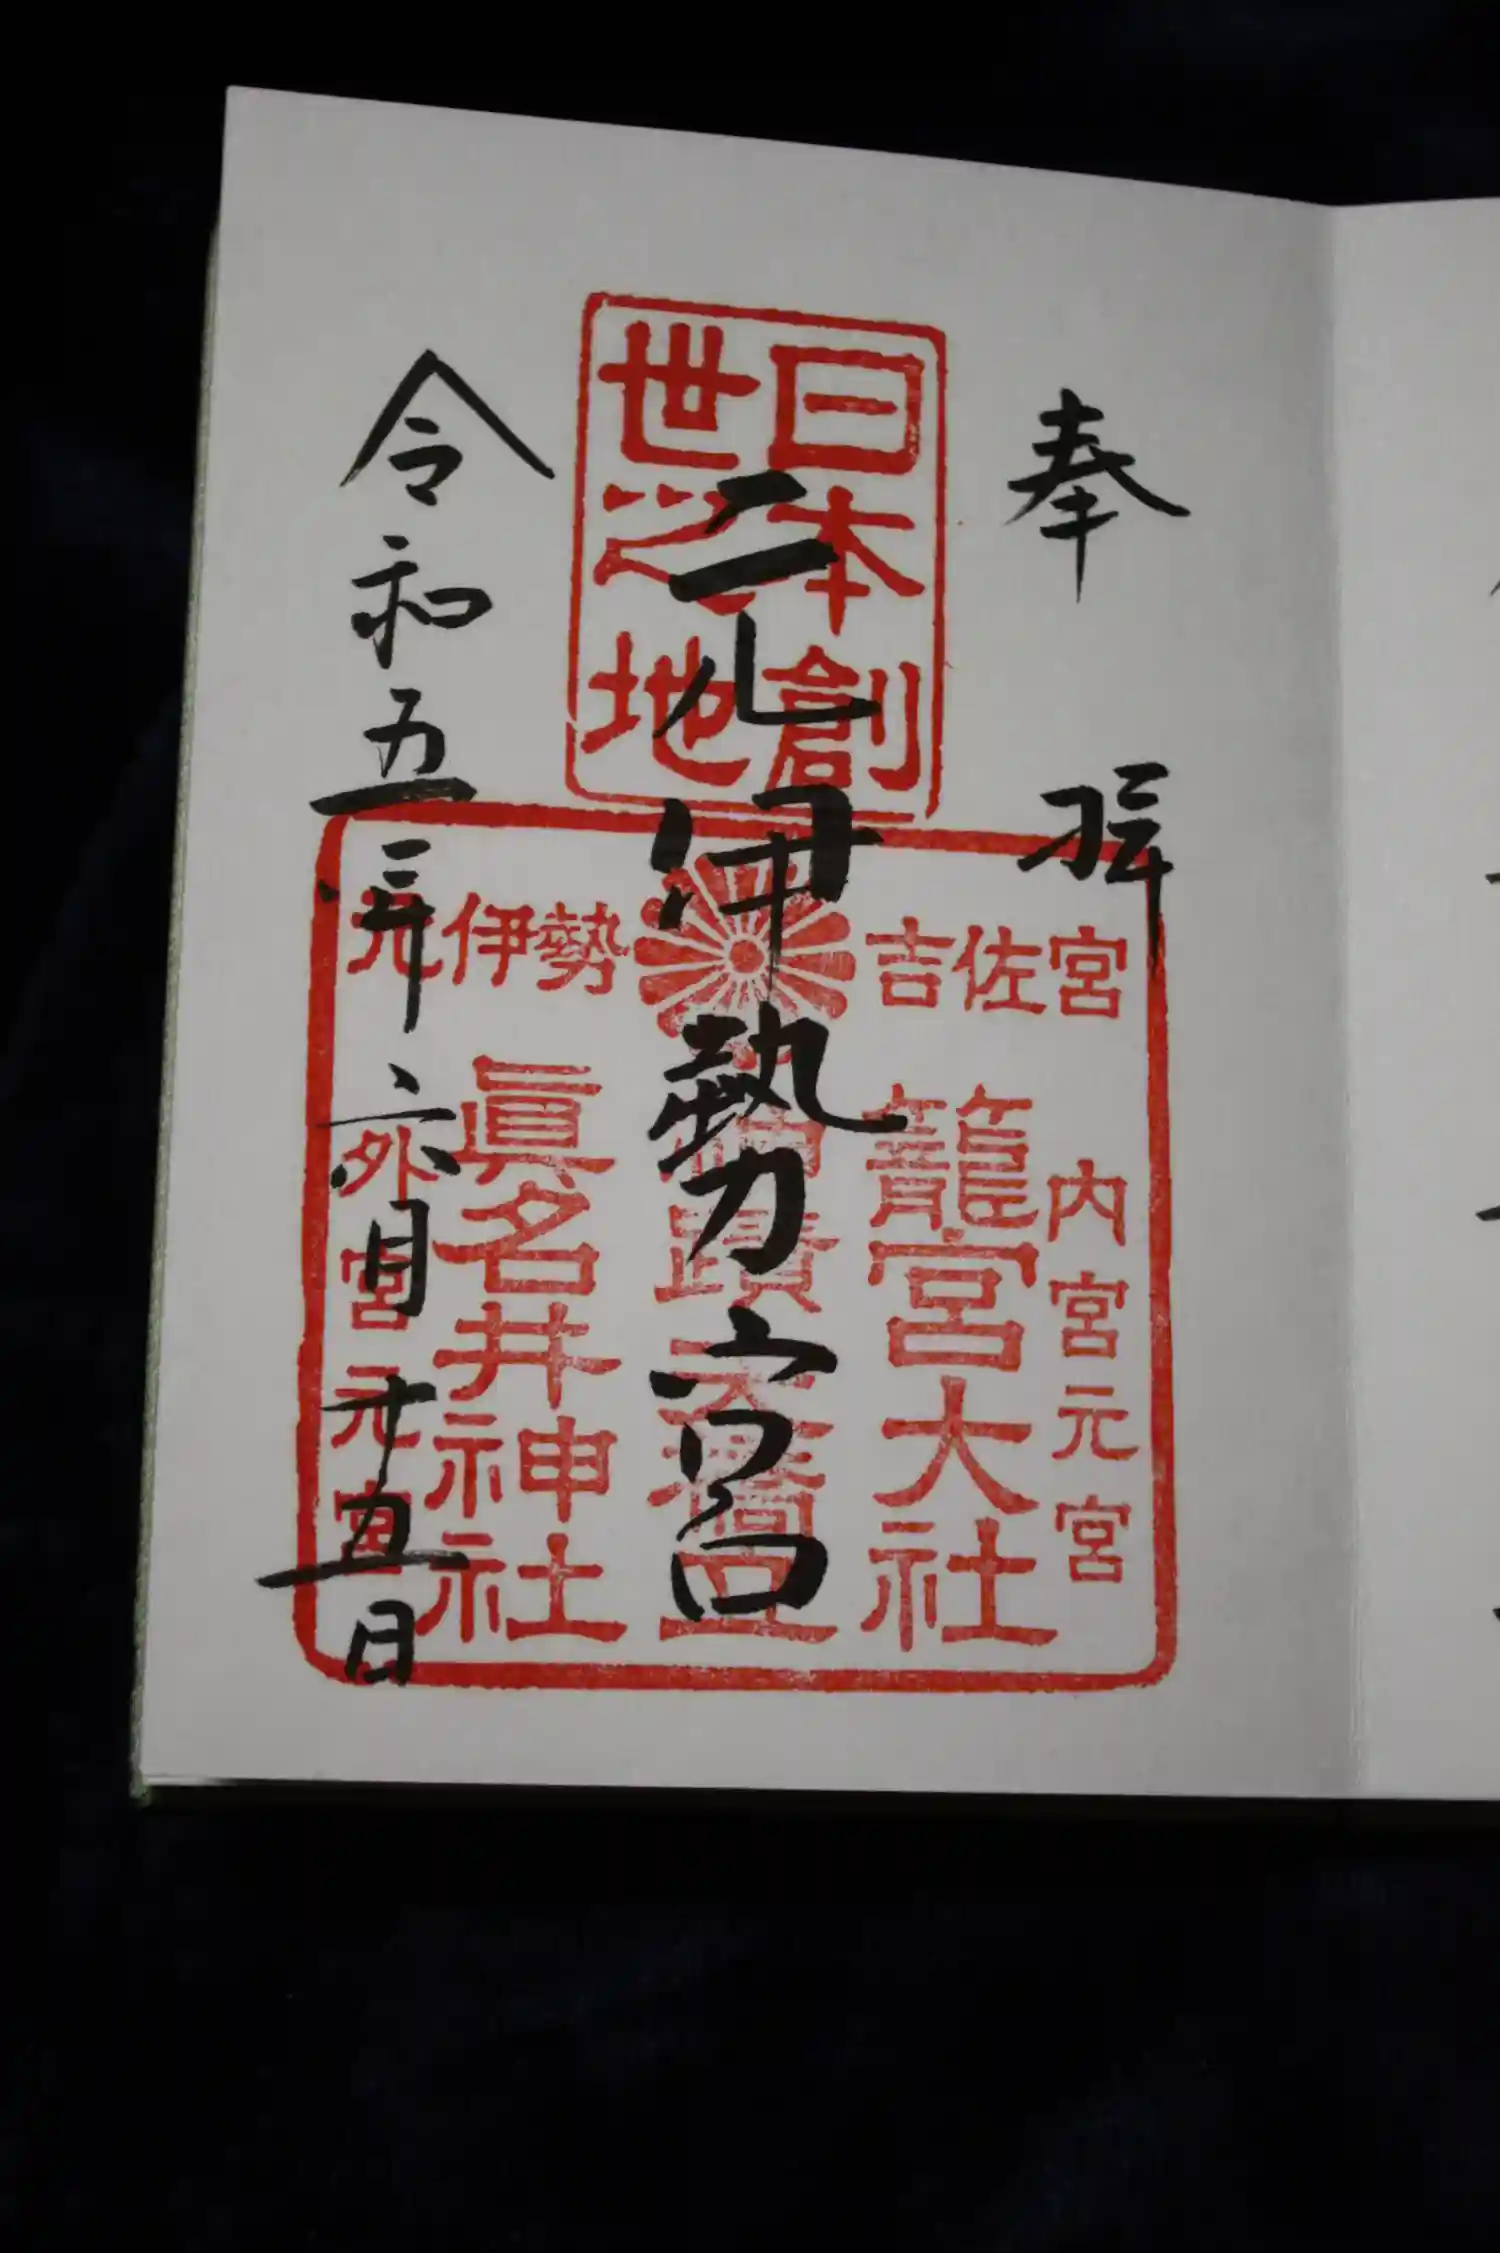 奉拝
日本創
世之地
元伊勢宮
吉佐宮
元伊勢
内宮元宮
籠宮大社
眞名井神社
外宮元宮
令和五年六月十五日